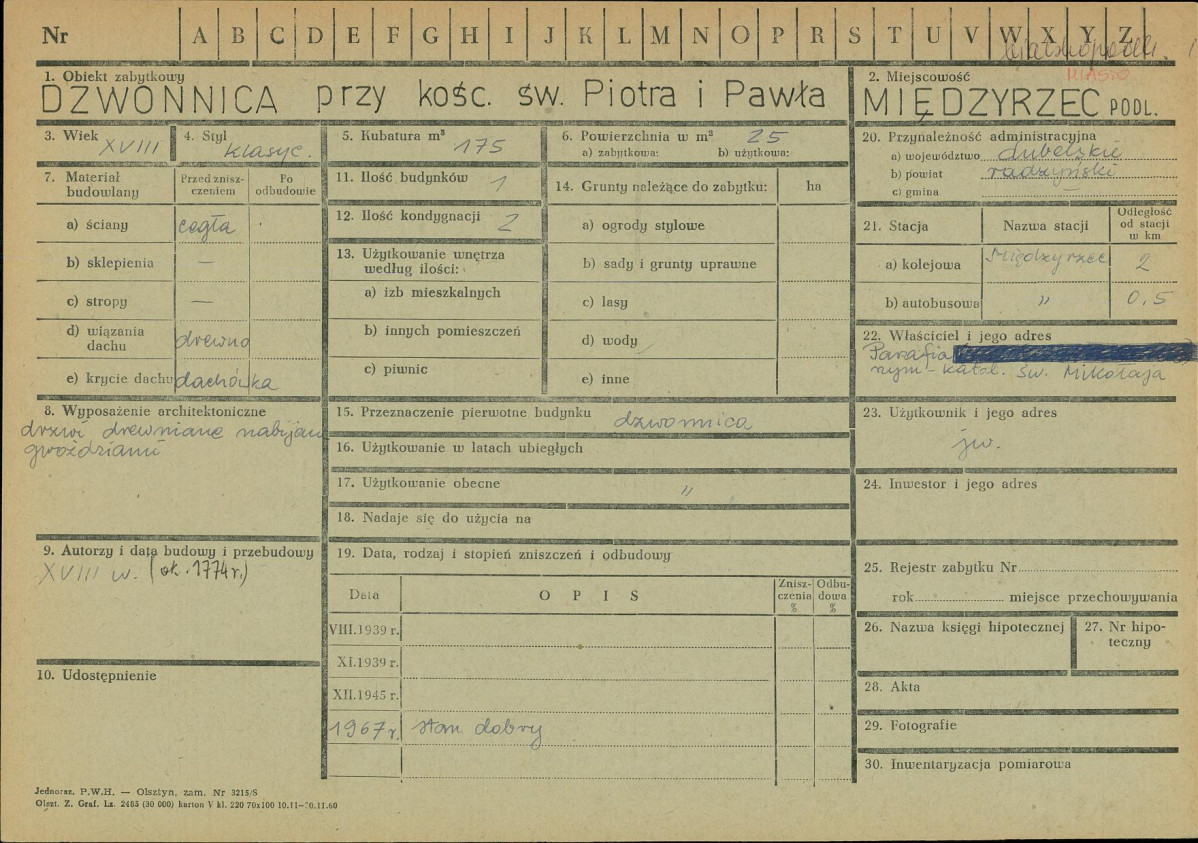 Nr A B C D E F G H I J K L M N O P R S T U V W X Y Z
bialskopodl.
MIASTO
1. Obiekt zabytkowy
DZWONNICA przy kośc. św. Piotra i Pawła
2. Miejscowość
MIĘDZYRZEC PODL.
3. Wiek XVIII
4. Styl klasyc.
5. Kubatura m³ 175
6. Powierzchnia w m² 25
a) zabytkowa: b) użytkowa:
7. Materiał budowlany
Przed znisz-
czeniem
Po
odbudowie
a) ściany cegła
b) sklepienia —
c) stropy —
d) wiązania
dachu drewno
e) krycie dachu dachówka
8. Wyposażenie architektoniczne
drzwi drewniane nabijan
gwoździami
9. Autorzy i data budowy i przebudowy
XVIII w. (ok. 1774 r.)
10. Udostępnienie
11. Ilość budynków 1
12. Ilość kondygnacji 2
13. Użytkowanie wnętrza
według ilości:
a) izb mieszkalnych
b) innych pomieszczeń
c) piwnic
14. Grunty należące do zabytku: ha
a) ogrody stylowe
b) sady i grunty uprawne
c) lasy
d) wody
e) inne
15. Przeznaczenie pierwotne budynku dzwonnica
16. Użytkowanie w latach ubiegłych
17. Użytkowanie obecne "
18. Nadaje się do użycia na
19. Data, rodzaj i stopień zniszczeń i odbudowy
Data OPIS
Znisz-
czenia
%
Odbu-
dowa
%
VIII.1939 r.
XI.1939 r.
XII.1945 r.
1967 r. stan dobry
20. Przynależność administracyjna
a) województwo lubelskie
b) powiat radzyński
c) gmina —
21. Stacja Nazwa stacji
Odległość
od stacji
w km
a) kolejowa Międzyrzec 2
b) autobusowa " 0,5
22. Właściciel i jego adres
Parafia
rzym-katol. św. Mikołaja
23. Użytkownik i jego adres
jw.
24. Inwestor i jego adres
25. Rejestr zabytku Nr
rok miejsce przechowywania
26. Nazwa księgi hipotecznej
27. Nr hipo-
teczny
28. Akta
29. Fotografie
30. Inwentaryzacja pomiarowa
Jednoraz. P.W.H. — Olsztyn, zam. Nr 3215/S
Olszt. Z. Graf. Lz. 2485 (30 000) karton V kl. 220 70x100 10.11—30.11.60